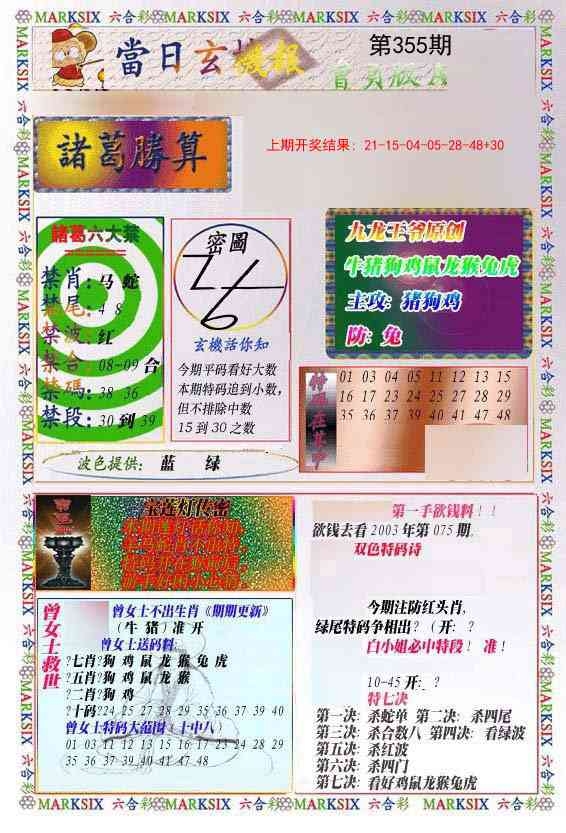 MARKSIX 六合彩 MARKSIX 六合彩 MARKSIX 六合彩 MARKSIX 六合彩
當日玄機報
第355期
首頁版A
諸葛勝算
上期开奖结果：21-15-04-05-28-48+30
諸葛六大禁
禁肖：马 蛇
禁尾：4 8
禁波：红
禁合：08-09 合
禁碼：38 36
禁段：30 到 39
密圖
玄機話你知
今期平码看好大数
本期特码追到小数，
但不排除中数
15 到 30 之数
九龙王爷原创
牛猪狗鸡鼠龙猴兔虎
主攻：猪狗鸡
防：兔
特码在其中
01 03 04 05 11 12 13 15
16 17 23 24 25 27 28 29
35 36 37 39 40 41 47 48
波色提供： 蓝 绿
宝莲灯传密
第一手欲钱料！！
欲钱去看 2003 年第 075 期。
双色特码诗
今期注防红头肖，
绿尾特码争相出？（开：？
白小姐必中特段！ 准！
10-45 开：？
特七决
第一决：杀蛇单 第二决：杀四尾
第三决：杀合数八 第四决：看绿波
第五决：杀红波
第六决：杀四门
第七决：看好鸡鼠龙猴兔虎
曾女士救世
曾女士不出生肖《期期更新》
（牛 猪）准 开
曾女士送码料：
?七肖?狗 鸡 鼠 龙 猴 兔 虎
?五肖?狗 鸡 鼠 龙 猴
?二肖?狗 鸡
?十码?24 25 27 28 29 35 36 37 39 40
曾女士特码大范围（十中八）
01 03 11 12 13 15 16 17 23 24 28 29
35 36 37 39 40 41 47 48
MARKSIX 六合彩 MARKSIX 六合彩 MARKSIX 六合彩 MARKSIX 六合彩